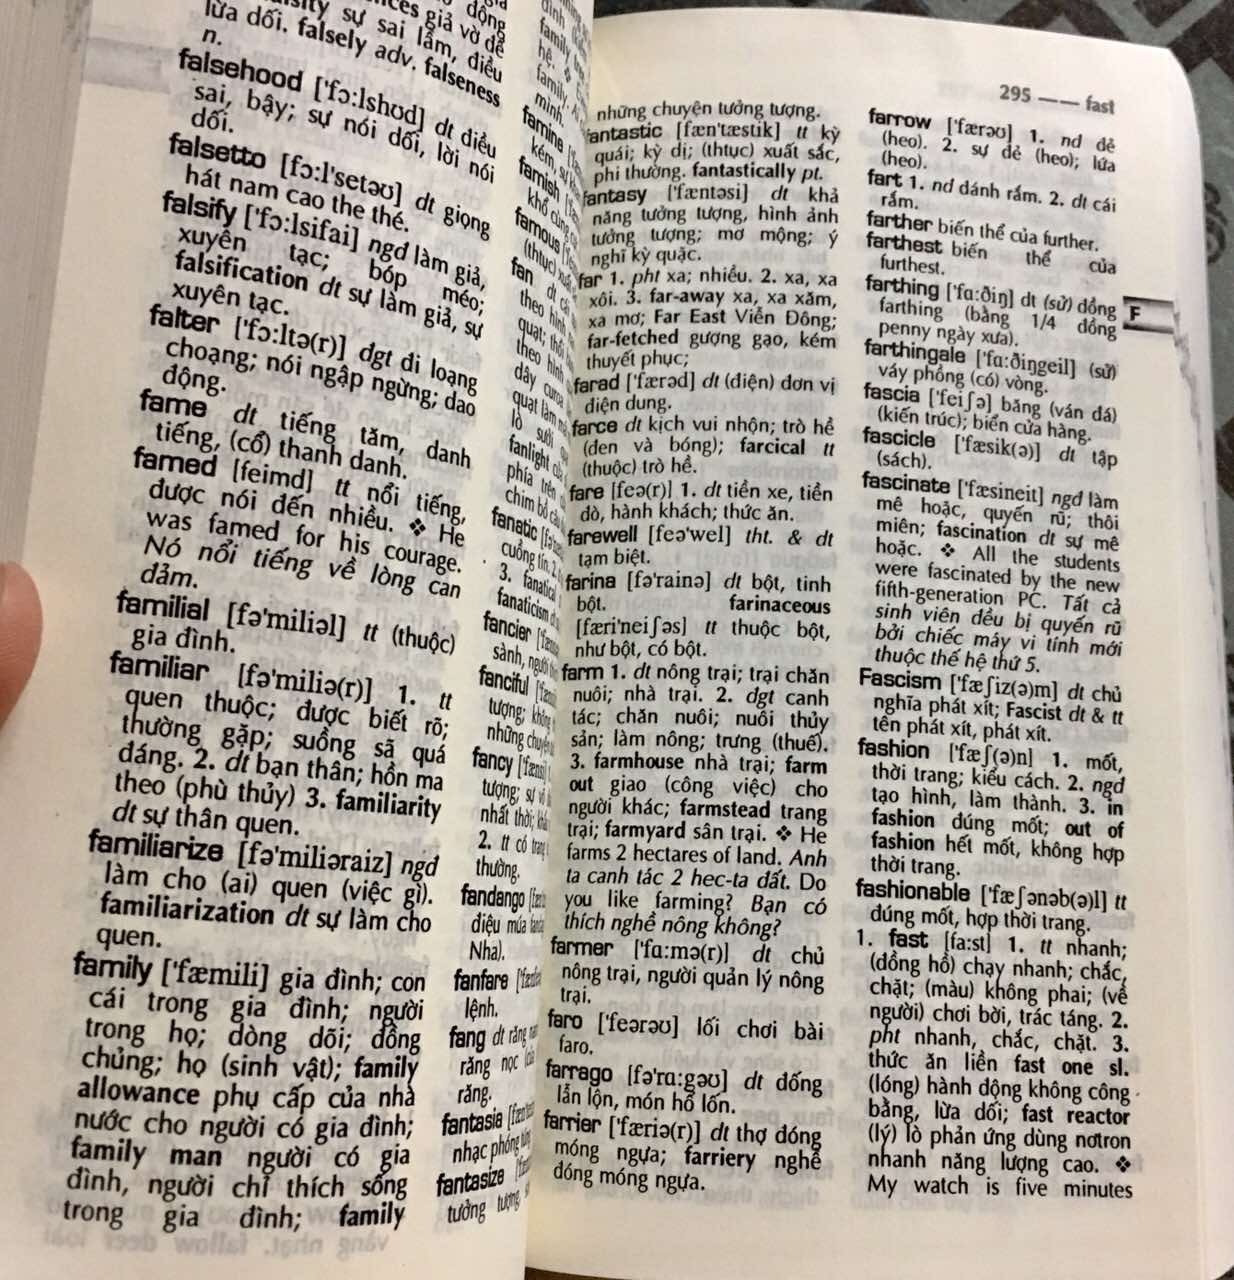 giả vờ để
lừa dối. falsely adv. falseness
n.
falsehood ['fɔ:lshʊd] dt điều
sai, bậy; sự nói dối, lời nói
dối.
falsetto [fɔ:l'setəʊ] dt giọng
hát nam cao the thé.
falsify ['fɔ:lsifai] ngđ làm giả,
xuyên tạc; bóp méo;
falsification dt sự làm giả, sự
xuyên tạc.
falter ['fɔ:ltə(r)] đgt đi loạng
choạng; nói ngập ngừng; dao
động.
fame dt tiếng tăm, danh
tiếng, (cổ) thanh danh.
famed [feimd] tt nổi tiếng,
được nói đến nhiều. ❖ He
was famed for his courage.
Nó nổi tiếng về lòng can
đảm.
familial [fə'miliəl] tt (thuộc)
gia đình.
familiar [fə'miliə(r)] 1. tt
quen thuộc; được biết rõ;
thường gặp; suồng sã quá
đáng. 2. dt bạn thân; hồn ma
theo (phù thủy) 3. familiarity
dt sự thân quen.
familiarize [fə'miliəraiz] ngđ
làm cho (ai) quen (việc gì).
familiarization dt sự làm cho
quen.
family ['fæmili] gia đình; con
cái trong gia đình; người
trong họ; dòng dõi; đồng
chủng; họ (sinh vật); family
allowance phụ cấp của nhà
nước cho người có gia đình;
family man người có gia
đình, người chỉ thích sống
trong gia đình; family
family tree
hệ. ❖
family.
mình.
famine
kém, sự
famish
khổ cùng
famous
(thtục)
fan dt
theo hình
quạt; thổi
theo hình
dây curoa
quạt làm
lò sưởi
fanlight
phía trên
chim bồ câu
fanatic
cuồng tín. 2.
3. fanatical
fanaticism
fancier
sành, người
fanciful
tượng; không
những chuyện
fancy ['fænsi]
tượng; sự
nhất thời;
2. tt có trang
thường.
fandango
điệu múa
Nha).
fanfare
lệnh.
fang dt răng
răng nọc
răng.
fantasia
nhạc phóng túng
fantasize
tưởng tượng,
295 —— fast
những chuyện tưởng tượng.
fantastic [fæn'tæstik] tt kỳ
quái; kỳ dị; (thtục) xuất sắc,
phi thường. fantastically pt.
fantasy ['fæntəsi] dt khả
năng tưởng tượng, hình ảnh
tưởng tượng; mơ mộng; ý
nghĩ kỳ quặc.
far 1. pht xa; nhiều. 2. xa, xa
xôi. 3. far-away xa, xa xăm,
xa mơ; Far East Viễn Đông;
far-fetched gượng gạo, kém
thuyết phục;
farad ['færəd] dt (điện) đơn vị
điện dung.
farce dt kịch vui nhộn; trò hề
(đen và bóng); farcical tt
(thuộc) trò hề.
fare [feə(r)] 1. dt tiền xe, tiền
đò, hành khách; thức ăn.
farewell [feə'wel] tht. & dt
tạm biệt.
farina [fə'rainə] dt bột, tinh
bột. farinaceous
[færi'neiʃəs] tt thuộc bột,
như bột, có bột.
farm 1. dt nông trại; trại chăn
nuôi; nhà trại. 2. đgt canh
tác; chăn nuôi; nuôi thủy
sản; làm nông; trưng (thuế).
3. farmhouse nhà trại; farm
out giao (công việc) cho
người khác; farmstead trang
trại; farmyard sân trại. ❖ He
farms 2 hectares of land. Anh
ta canh tác 2 hec-ta đất. Do
you like farming? Bạn có
thích nghề nông không?
farmer ['fɑ:mə(r)] dt chủ
nông trại, người quản lý nông
trại.
faro ['feərəʊ] lối chơi bài
faro.
farrago [fə'rɑ:gəʊ] dt đống
lẫn lộn, món hổ lốn.
farrier ['færiə(r)] dt thợ đóng
móng ngựa; farriery nghề
đóng móng ngựa.
farrow ['færəʊ] 1. nđ đẻ
(heo). 2. sự đẻ (heo); lứa
(heo).
fart 1. nđ đánh rắm. 2. dt cái
rắm.
farther biến thể của further.
farthest biến thể của
furthest.
farthing ['fɑ:ðiŋ] dt (sử) đồng
farthing (bằng 1/4 đồng
penny ngày xưa).
farthingale ['fɑ:ðiŋgeil] (sử)
váy phồng (có) vòng.
fascia ['feiʃə] băng (ván đá)
(kiến trúc); biển cửa hàng.
fascicle ['fæsik(ə)] dt tập
(sách).
fascinate ['fæsineit] ngđ làm
mê hoặc, quyến rũ; thôi
miên; fascination dt sự mê
hoặc. ❖ All the students
were fascinated by the new
fifth-generation PC. Tất cả
sinh viên đều bị quyến rũ
bởi chiếc máy vi tính mới
thuộc thế hệ thứ 5.
Fascism ['fæʃiz(ə)m] dt chủ
nghĩa phát xít; Fascist dt & tt
tên phát xít, phát xít.
fashion ['fæʃ(ə)n] 1. mốt,
thời trang; kiểu cách. 2. ngđ
tạo hình, làm thành. 3. in
fashion đúng mốt; out of
fashion hết mốt, không hợp
thời trang.
fashionable ['fæʃənəb(ə)l] tt
đúng mốt, hợp thời trang.
1. fast [fa:st] 1. tt nhanh;
(đồng hồ) chạy nhanh; chắc,
chặt; (màu) không phai; (về
người) chơi bời, trác táng. 2.
pht nhanh, chắc, chặt. 3.
thức ăn liền fast one sl.
(lóng) hành động không công
bằng, lừa dối; fast reactor
(lý) lò phản ứng dùng nơtron
nhanh năng lượng cao. ❖
My watch is five minutes
F